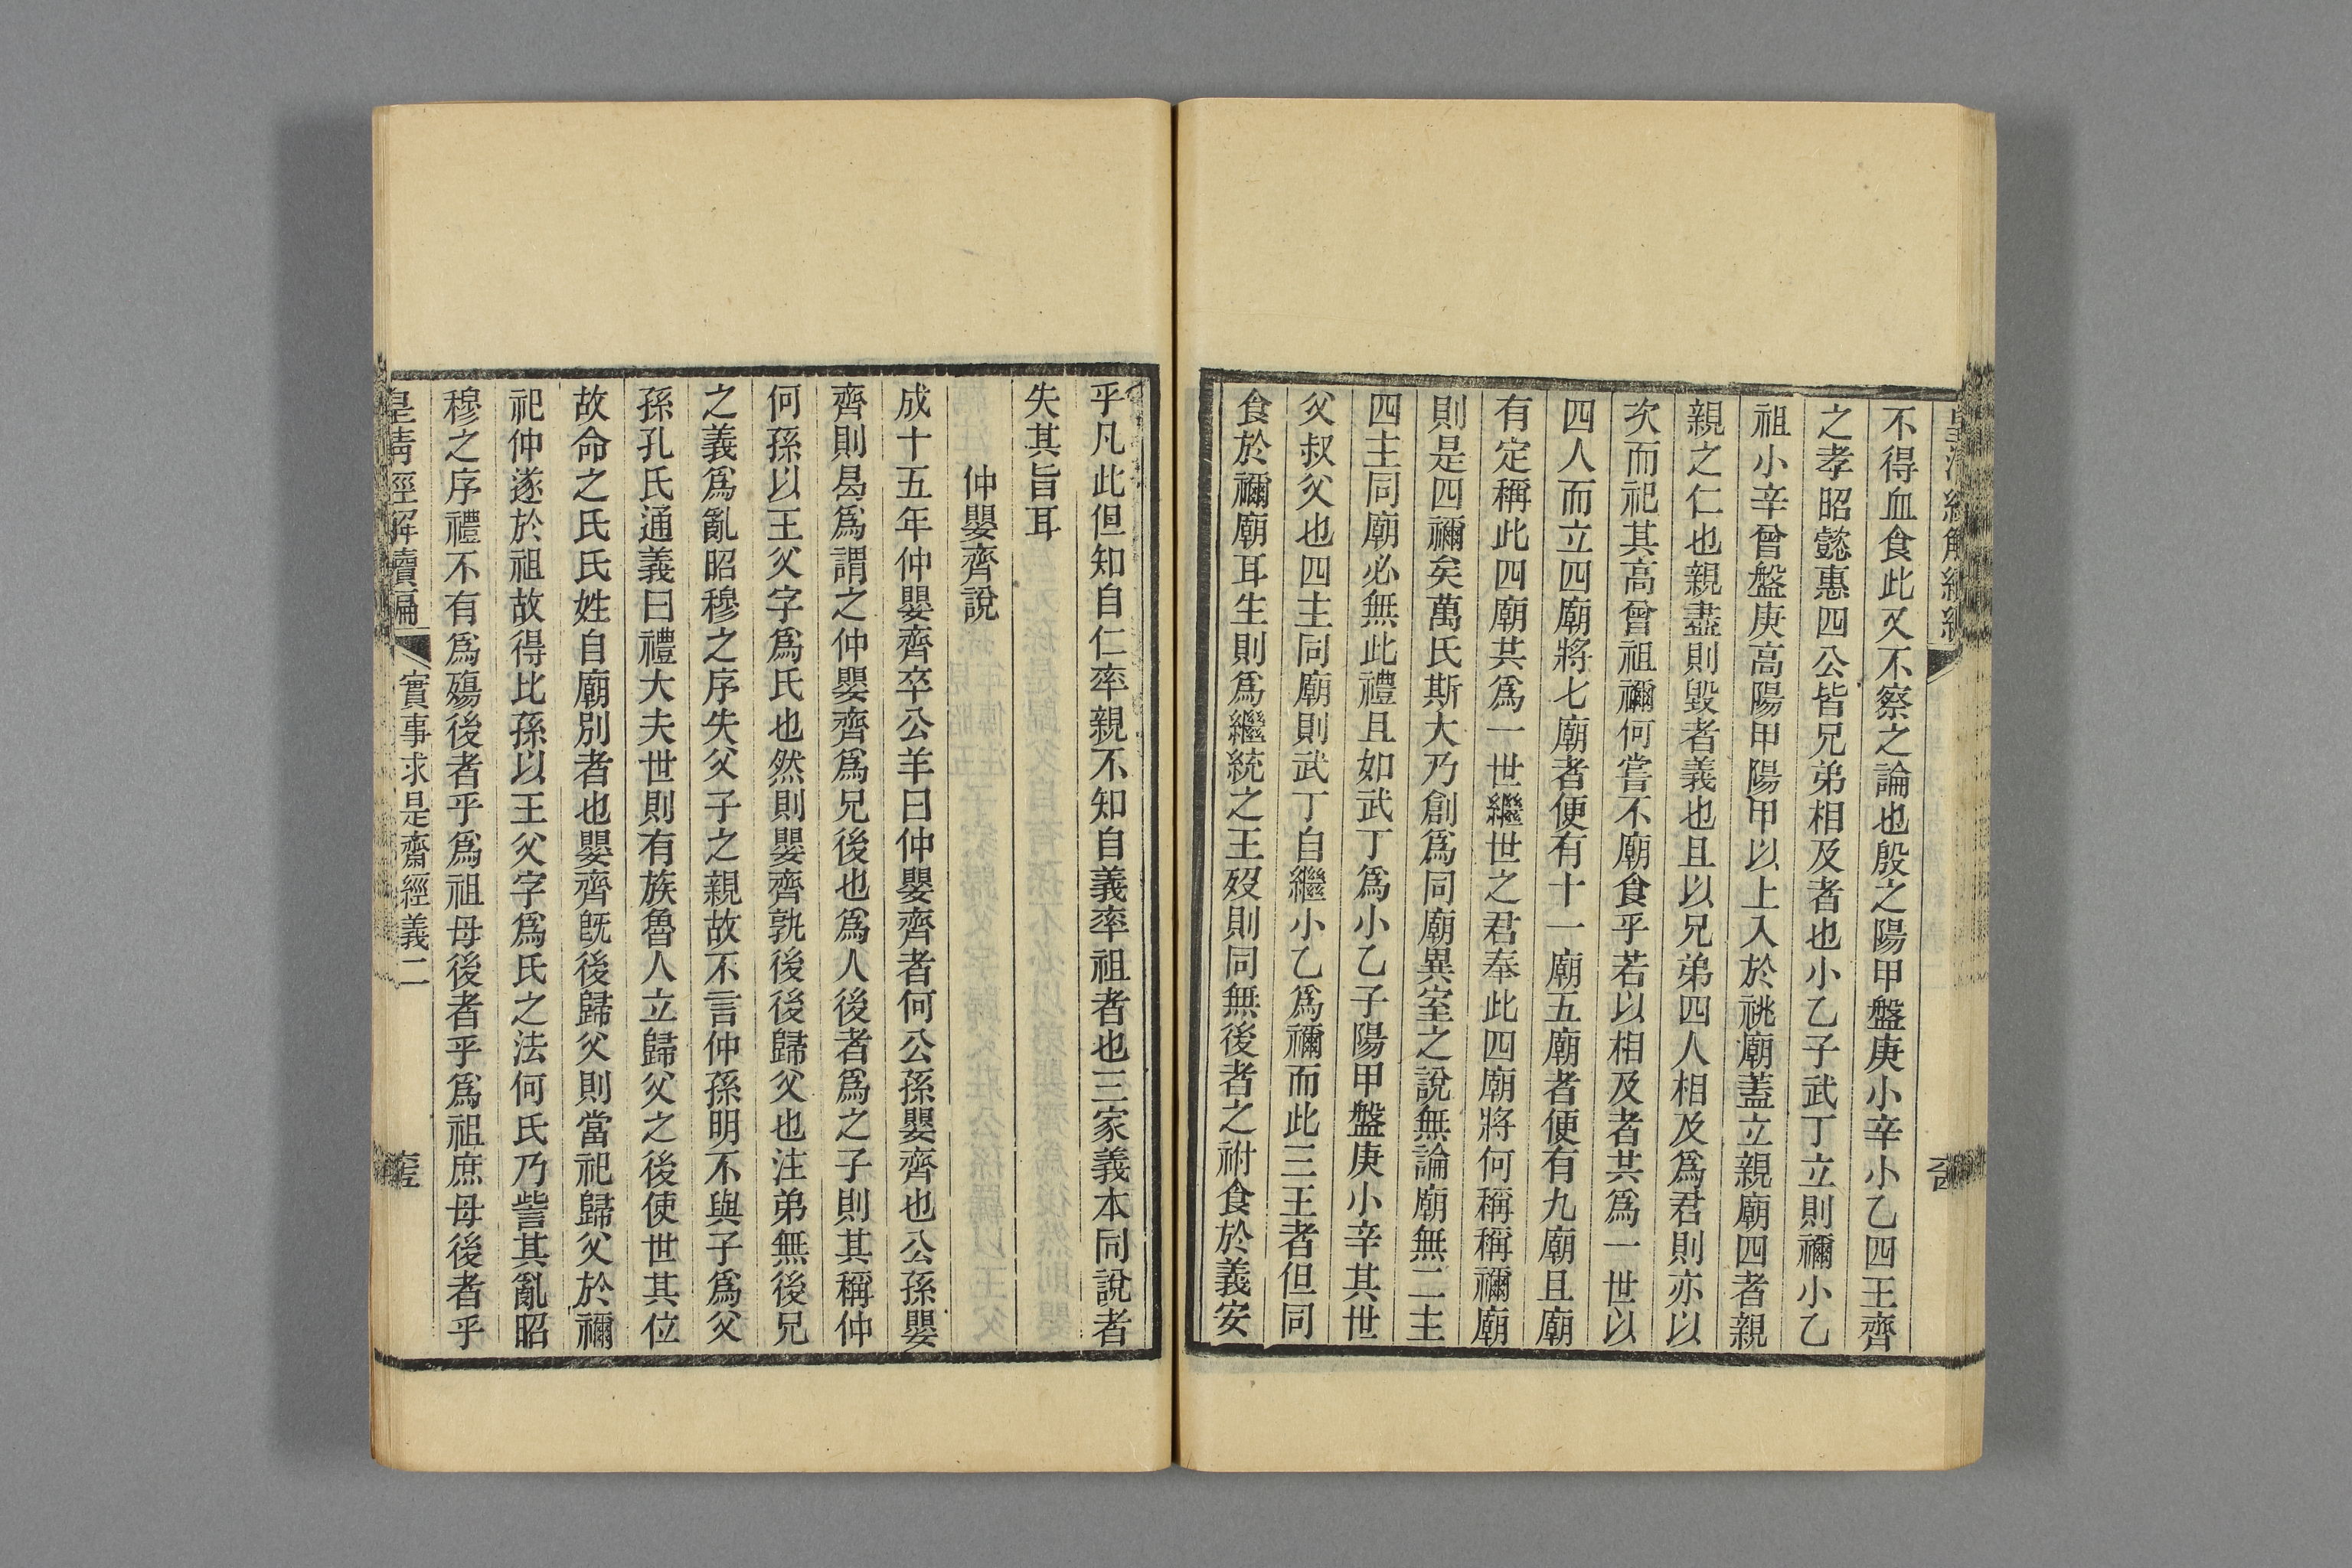 不得血食此又不察之論也殷之陽甲盤庚小辛小乙四王齊
之孝昭懿惠四公皆兄弟相及者也小乙子武丁立則禰小乙
祖小辛曾盤庚高陽甲陽甲以上入於祧廟蓋立親廟四者親
親之仁也親盡則毀者義也且以兄弟四人相及爲君則亦以
次而祀其高曾祖禰何嘗不廟食乎若以相及者共爲一世以
四人而立四廟將七廟者便有十一廟五廟者便有九廟且廟
有定稱此四廟其爲一世繼世之君奉此四廟將何稱稱禰廟
則是四禰矣萬氏斯大乃創爲同廟異室之說無論廟無二主
四主同廟必無此禮且如武丁爲小乙子陽甲盤庚小辛其世
父叔父也四主同廟則武丁自繼小乙爲禰而此三王者但同
食於禰廟耳生則爲繼統之王歿則同無後者之祔食於義安
乎凡此但知自仁率親不知自義率祖者也三家義本同說者
失其旨耳
仲嬰齊說
成十五年仲嬰齊卒公羊曰仲嬰齊者何公孫嬰齊也公孫嬰
齊則曷爲謂之仲嬰齊爲兄後也爲人後者爲之子則其稱仲
何孫以王父字爲氏也然則嬰齊孰後後歸父也注弟無後兄
之義爲亂昭穆之序失父子之親故不言仲孫明不與子爲父
孫孔氏通義曰禮大夫世則有族魯人立歸父之後使世其位
故命之氏氏姓自廟別者也嬰齊旣後歸父則當祀歸父於禰
祀仲遂於祖故得比孫以王父字爲氏之法何氏乃訾其亂昭
穆之序禮不有爲殤後者乎爲祖母後者乎爲祖庶母後者乎
皇淸經解續編 實事求是齋經義二